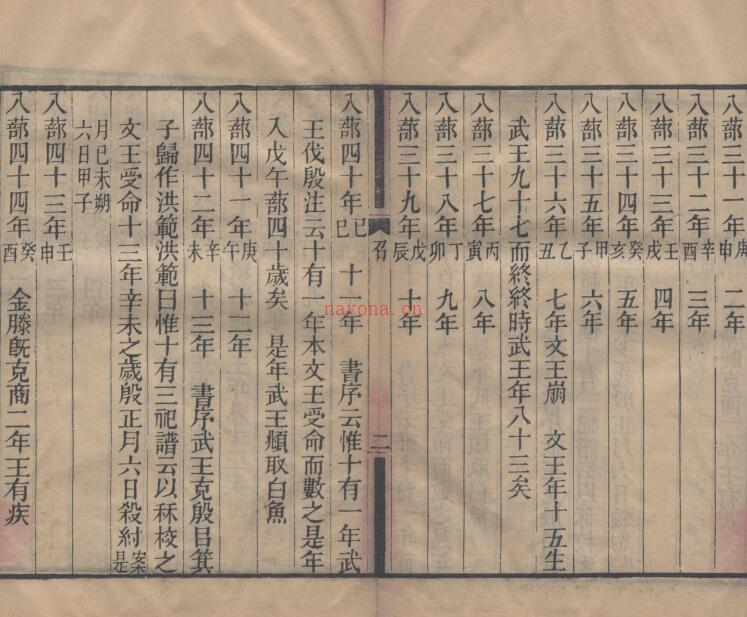 入蔀三十一年庚申 二年
入蔀三十二年辛酉 三年
入蔀三十三年壬戌 四年
入蔀三十四年癸亥 五年
入蔀三十五年甲子 六年
入蔀三十六年乙丑 七年文王崩 文王年十五生
武王九十七而終終時武王年八十三矣
入蔀三十七年丙寅 八年
入蔀三十八年丁卯 九年
入蔀三十九年戊辰 十年
召 二
入蔀四十年己巳 十一年 書序云惟十有一年武
王伐殷注云十有一年本文王受命而數之是年
入戊午蔀四十歲矣 是年武王頫取白魚
入蔀四十一年庚午 十二年
入蔀四十二年辛未 十三年 書序武王克殷㠯箕
子歸作洪範洪範曰惟十有三祀譜云以秝校之
文王受命十三年辛未之歲殷正月六日殺紂案是
月己未朔六日甲子
入蔀四十三年壬申
入蔀四十四年癸酉 金縢旣克商二年王有疾
nayona.cn